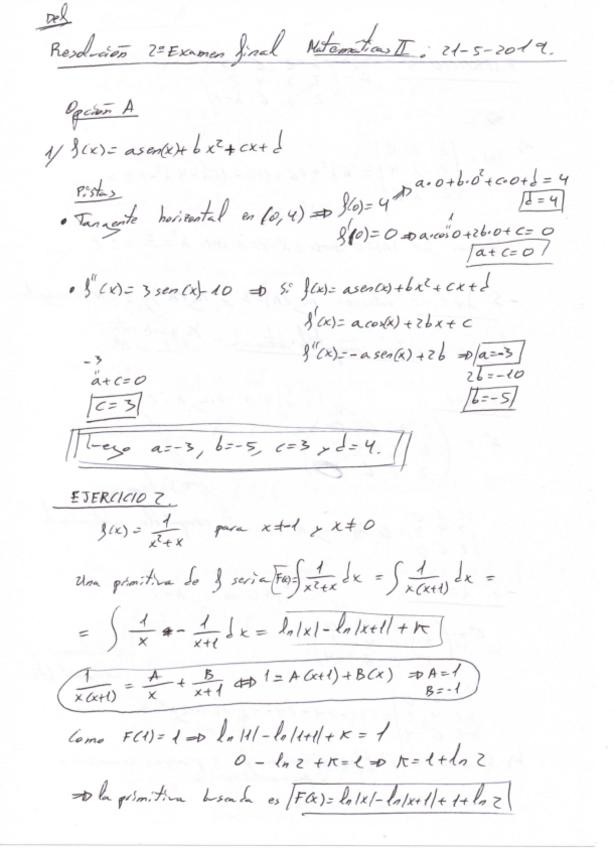 Resolución 2º Examen final Matemáticas II. 21-5-2019.
Opción A
1/ f(x)= a sen(x)+ b x² + cx + d
Pistas
• Tangente horizontal en (0,4) ⇒ f(0)=4 ⇒ a·0+b·0²+c·0+d=4
d=4
f'(0)=0 ⇒ a·cos 0+2b·0+c=0
1
a+c=0
• f''(x)= 3 sen(x)-10 ⇒ Si f(x)= a sen(x)+bx²+cx+d
f'(x)= a cos(x)+2bx+c
f''(x)=-a sen(x)+2b ⇒ a=-3
-3
a+c=0
2b=-10
c=3
b=-5
Luego a=-3, b=-5, c=3 y d=4.
EJERCICIO 2.
f(x)= 1/(x²+x) para x≠-1 y x≠0
Una primitiva de f seria F(x)=∫ 1/(x²+x) dx = ∫ 1/(x(x+1)) dx =
= ∫ 1/x - 1/(x+1) dx = ln|x|-ln|x+1|+K
1/(x(x+1)) = A/x + B/(x+1) ⇔ 1=A(x+1)+B(x) ⇒ A=1
B=-1
Como F(1)=1 ⇒ ln|1|-ln|1+1|+K=1
0 - ln 2 + K=1 ⇒ K=1+ln 2
⇒ la primitiva buscada es F(x)=ln|x|-ln|x+1|+1+ln 2